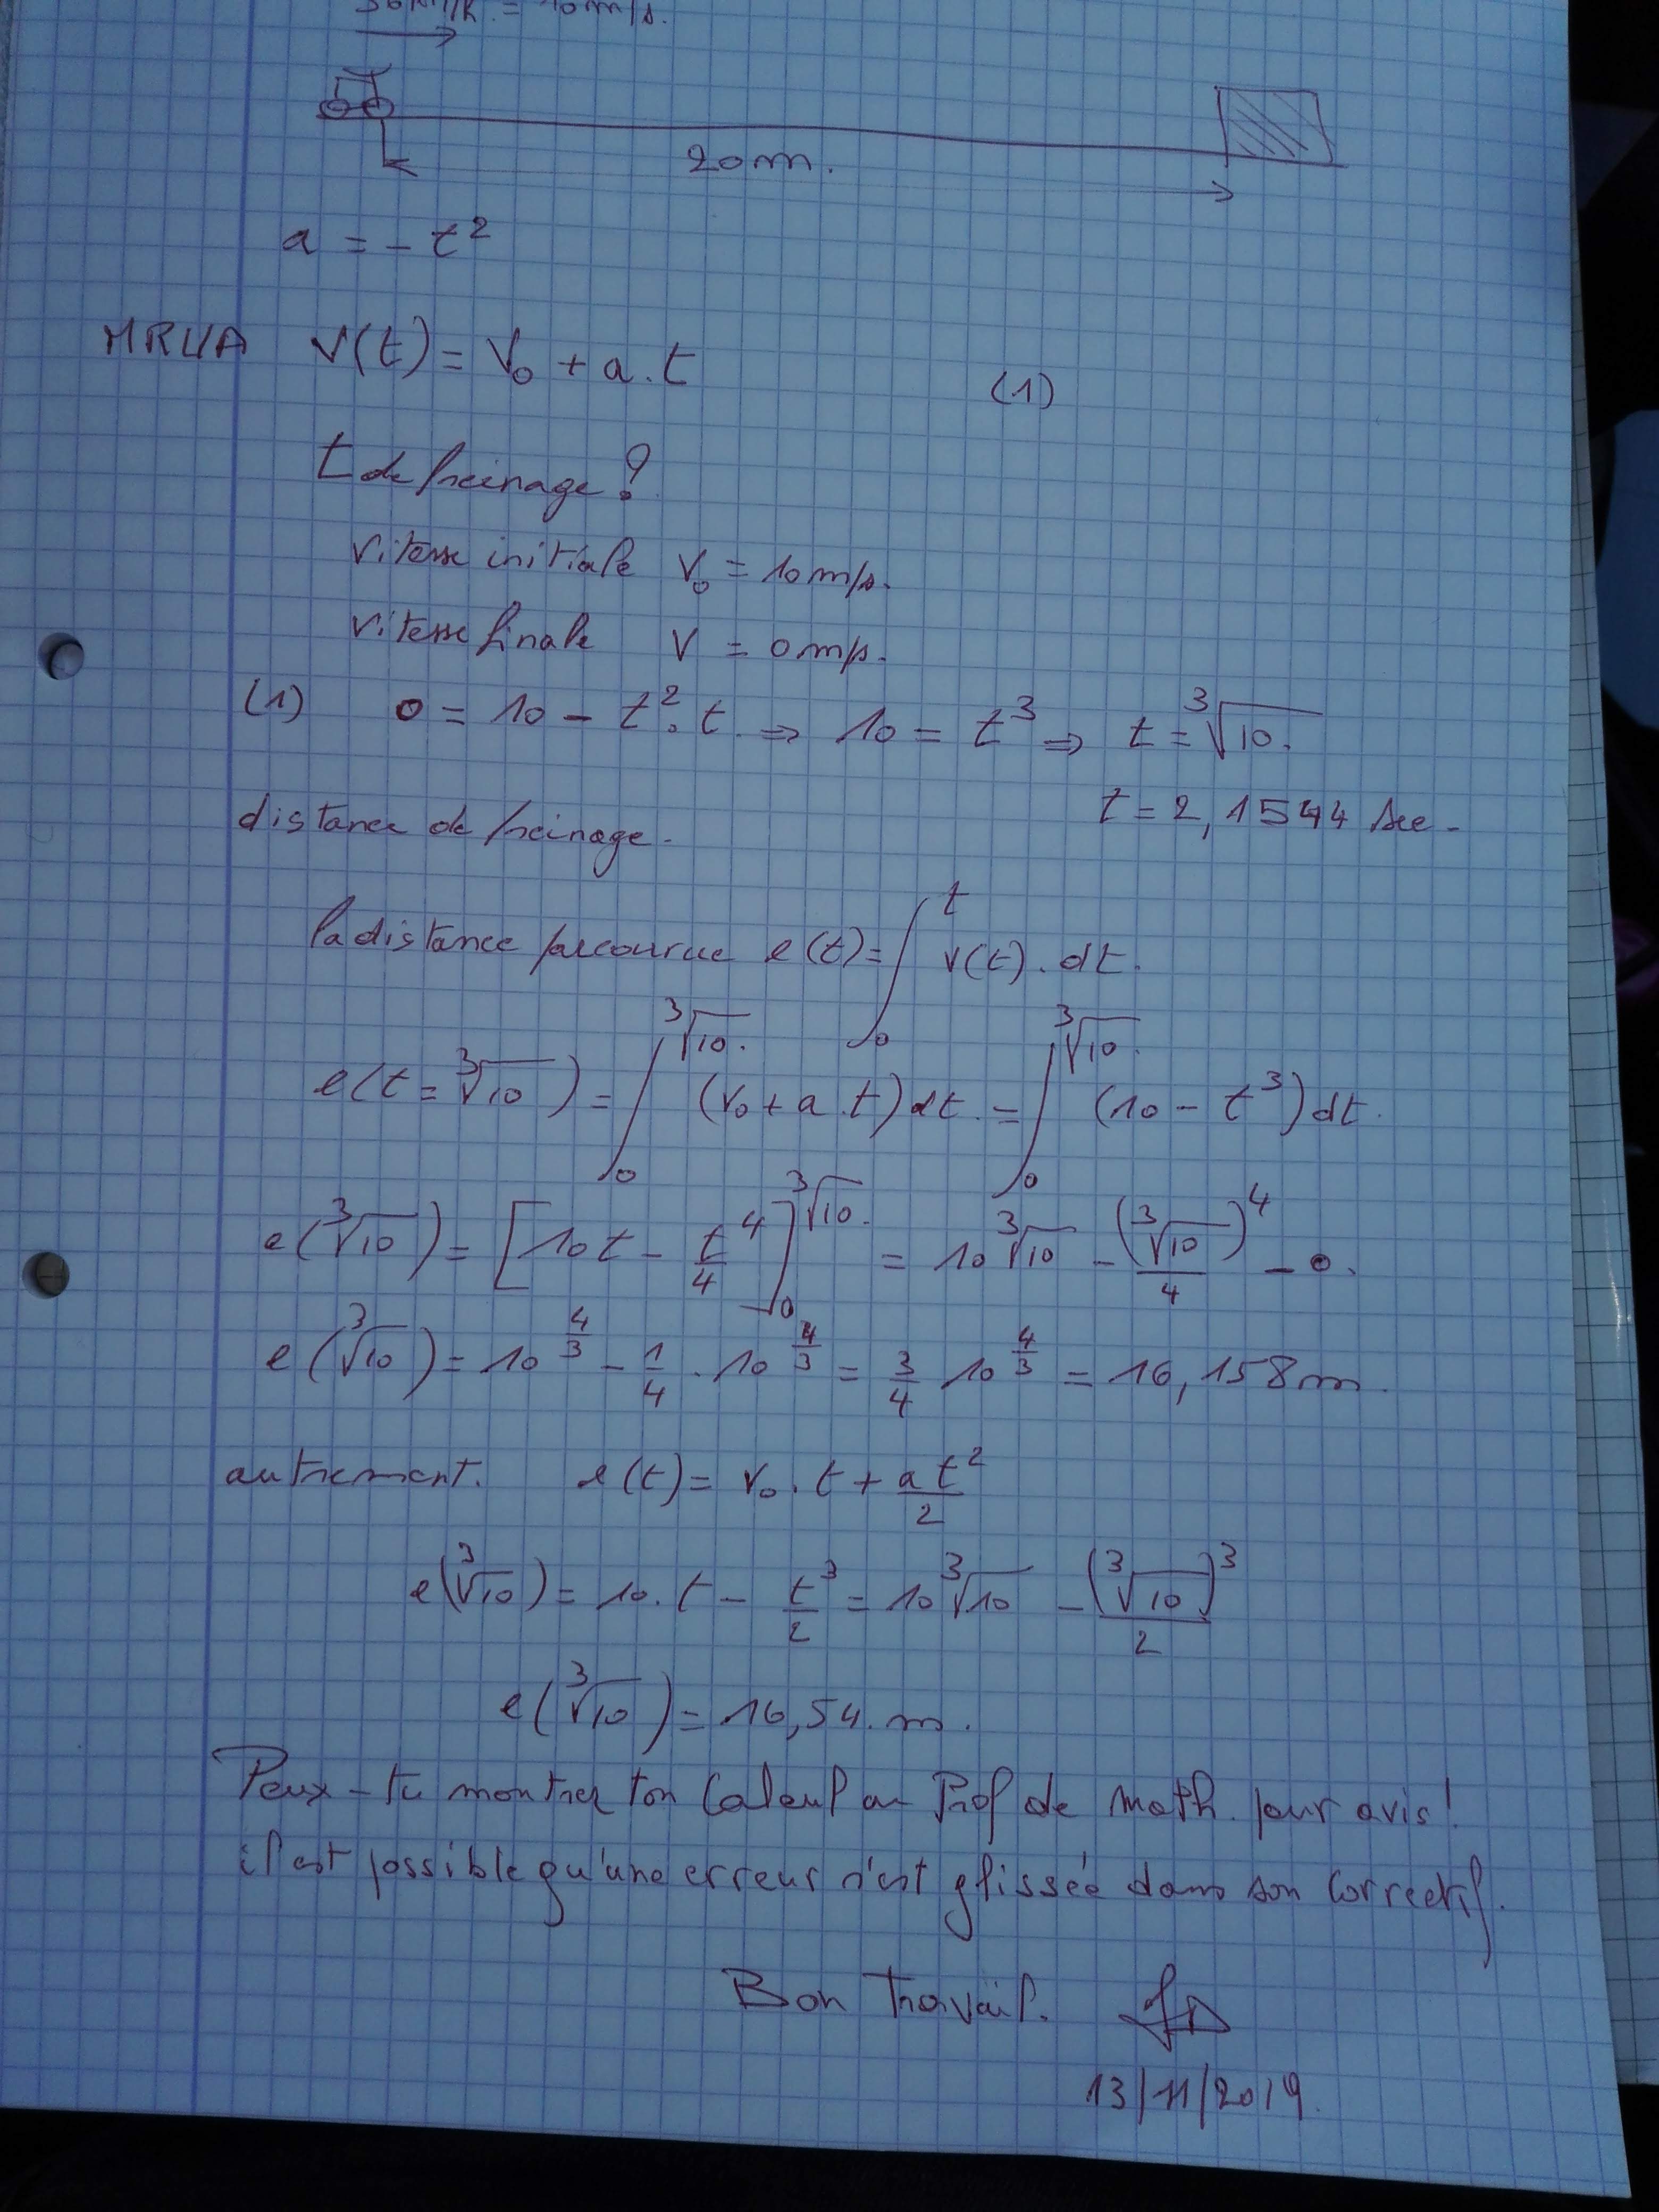 36 km/h. = 10 m/s.
20 m.
a = - t²
MRUA v(t) = v₀ + a.t (1)
t de freinage ?
vitesse initiale v₀ = 10 m/s.
vitesse finale v = 0 m/s.
(1) 0 = 10 - t².t ⇒ 10 = t³ ⇒ t = ³√10.
t = 2,1544 sec.
distance de freinage.
la distance parcourue e(t) = ∫₀ᵗ v(t). dt.
e(t = ³√10) = ∫₀^(³√10) (v₀ + a.t) dt. = ∫₀^(³√10) (10 - t³) dt.
e(³√10) = [10t - t⁴/4]₀^(³√10) = 10 ³√10 - (³√10)⁴/4 - 0.
e(³√10) = 10^(4/3) - 1/4 . 10^(4/3) = 3/4 10^(4/3) = 16,158 m.
autrement. e(t) = v₀.t + at²/2
e(³√10) = 10.t - t³/2 = 10 ³√10 - (³√10)³/2
e(³√10) = 16,54. m.
Peux-tu montrer ton Calcul au Prof de math. pour avis !
il est possible qu'une erreur s'est glissée dans son correctif.
Bon Travail.
13/11/2019.